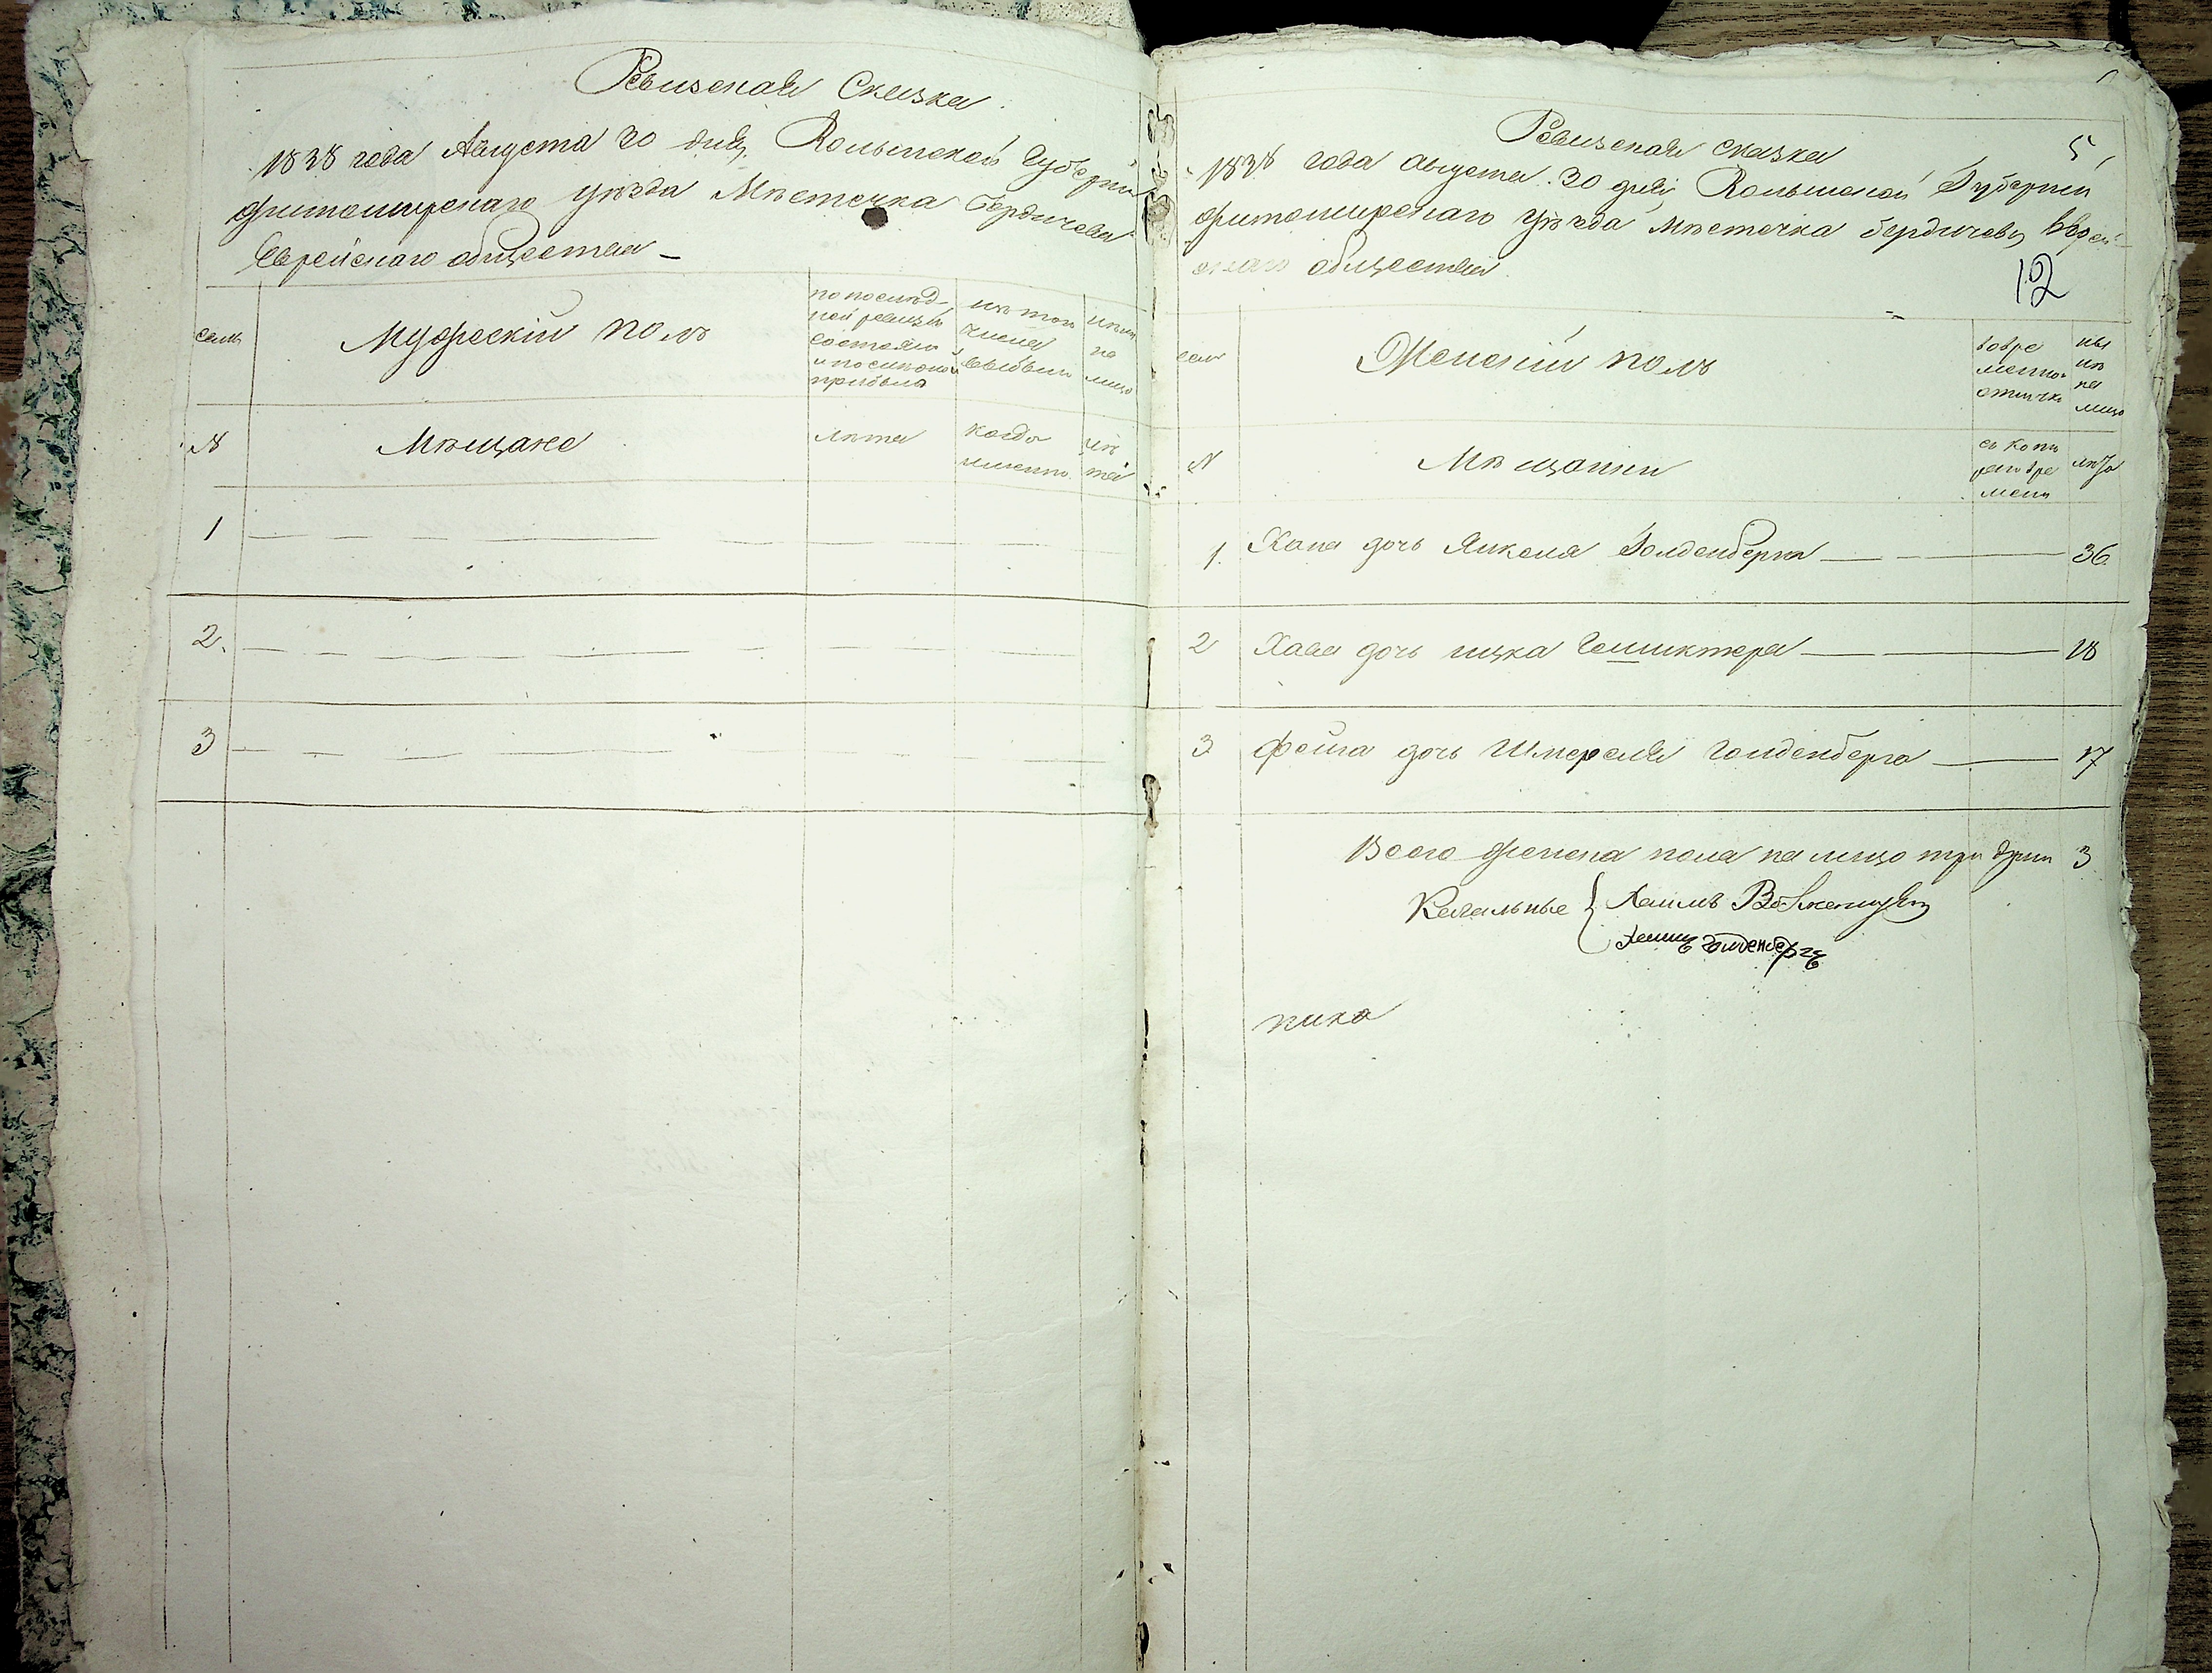 Ревизская Сказка
1838 года Августа 20 дня, Волынской Губернии
Житомирскаго уѣзда Мѣстечка Бердичева
Еврейскаго общества
семьи
Мужескій полъ
по послѣд-
ней ревизіи
состояло
и послѣ оной
прибыло
изъ того
числа
выбыло
нынѣ
на
лицо
№
Мѣщане
лѣта
когда
именно
лѣ
та
1
2.
3
Ревизская сказка
5
1838 года Августа 20 дня, Волынской Губерніи
Житомирскаго уѣзда мѣстечка Бердичева Еврей-
скаго общества
12
семьи
Женскій полъ
во вре
менной
отлучкѣ
ны
нѣ
на
лицо
№
Мѣщанки
съ кото
раго вре
мени
лѣта
1. Хана дочь Янкеля Голденберга 36
2 Хава дочь ицка 18
3 Фейга дочь Шмереля Голденберга 17
Всего женска пола на лицо три души 3
Кагальные Хаимъ
Голденбергъ